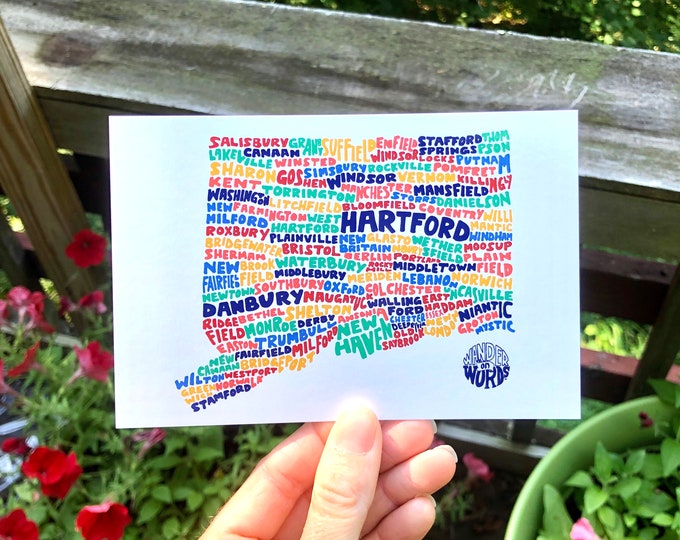 SALISBURY GRANBY SUFFIELD ENFIELD STAFFORD SPRINGS THOMPSON
LAKEVILLE CANAAN WINSTED WINDSOR LOCKS PUTNAM
SHARON GOSHEN SIMSBURY ROCKVILLE POMFRET
KENT WINDSOR VERNON KILLINGLY
WASHINGTON TORRINGTON MANCHESTER MANSFIELD
LITCHFIELD BLOOMFIELD COVENTRY STORRS DANIELSON
NEW MILFORD FARMINGTON WEST HARTFORD HARTFORD WILLIMANTIC
ROXBURY PLAINVILLE NEW BRITAIN WETHERSFIELD WINDHAM
BRIDGEWATER BRISTOL MOOSUP
SHERMAN BERLIN PORTLAND PLAINFIELD
NEW FAIRFIELD BROOKFIELD WATERBURY ROCKY MIDDLETOWN
MIDDLEBURY MERIDEN LEBANON NORWICH
NEWTOWN SOUTHBURY OXFORD COLCHESTER UNCASVILLE
DANBURY NAUGATUCK WALLINGFORD EAST HADDAM
RIDGEFIELD BETHEL SHELTON ANSONIA CHESTER ESSEX NIANTIC
MONROE DERBY NEW HAVEN DEEP OLD SAYBROOK NEW LONDON GROTON
EASTON TRUMBULL MILFORD MYSTIC
NEW CANAAN FAIRFIELD BRIDGEPORT
WILTON WESTPORT
GREENWICH NORWALK
STAMFORD
WANDER
ON
WORDS